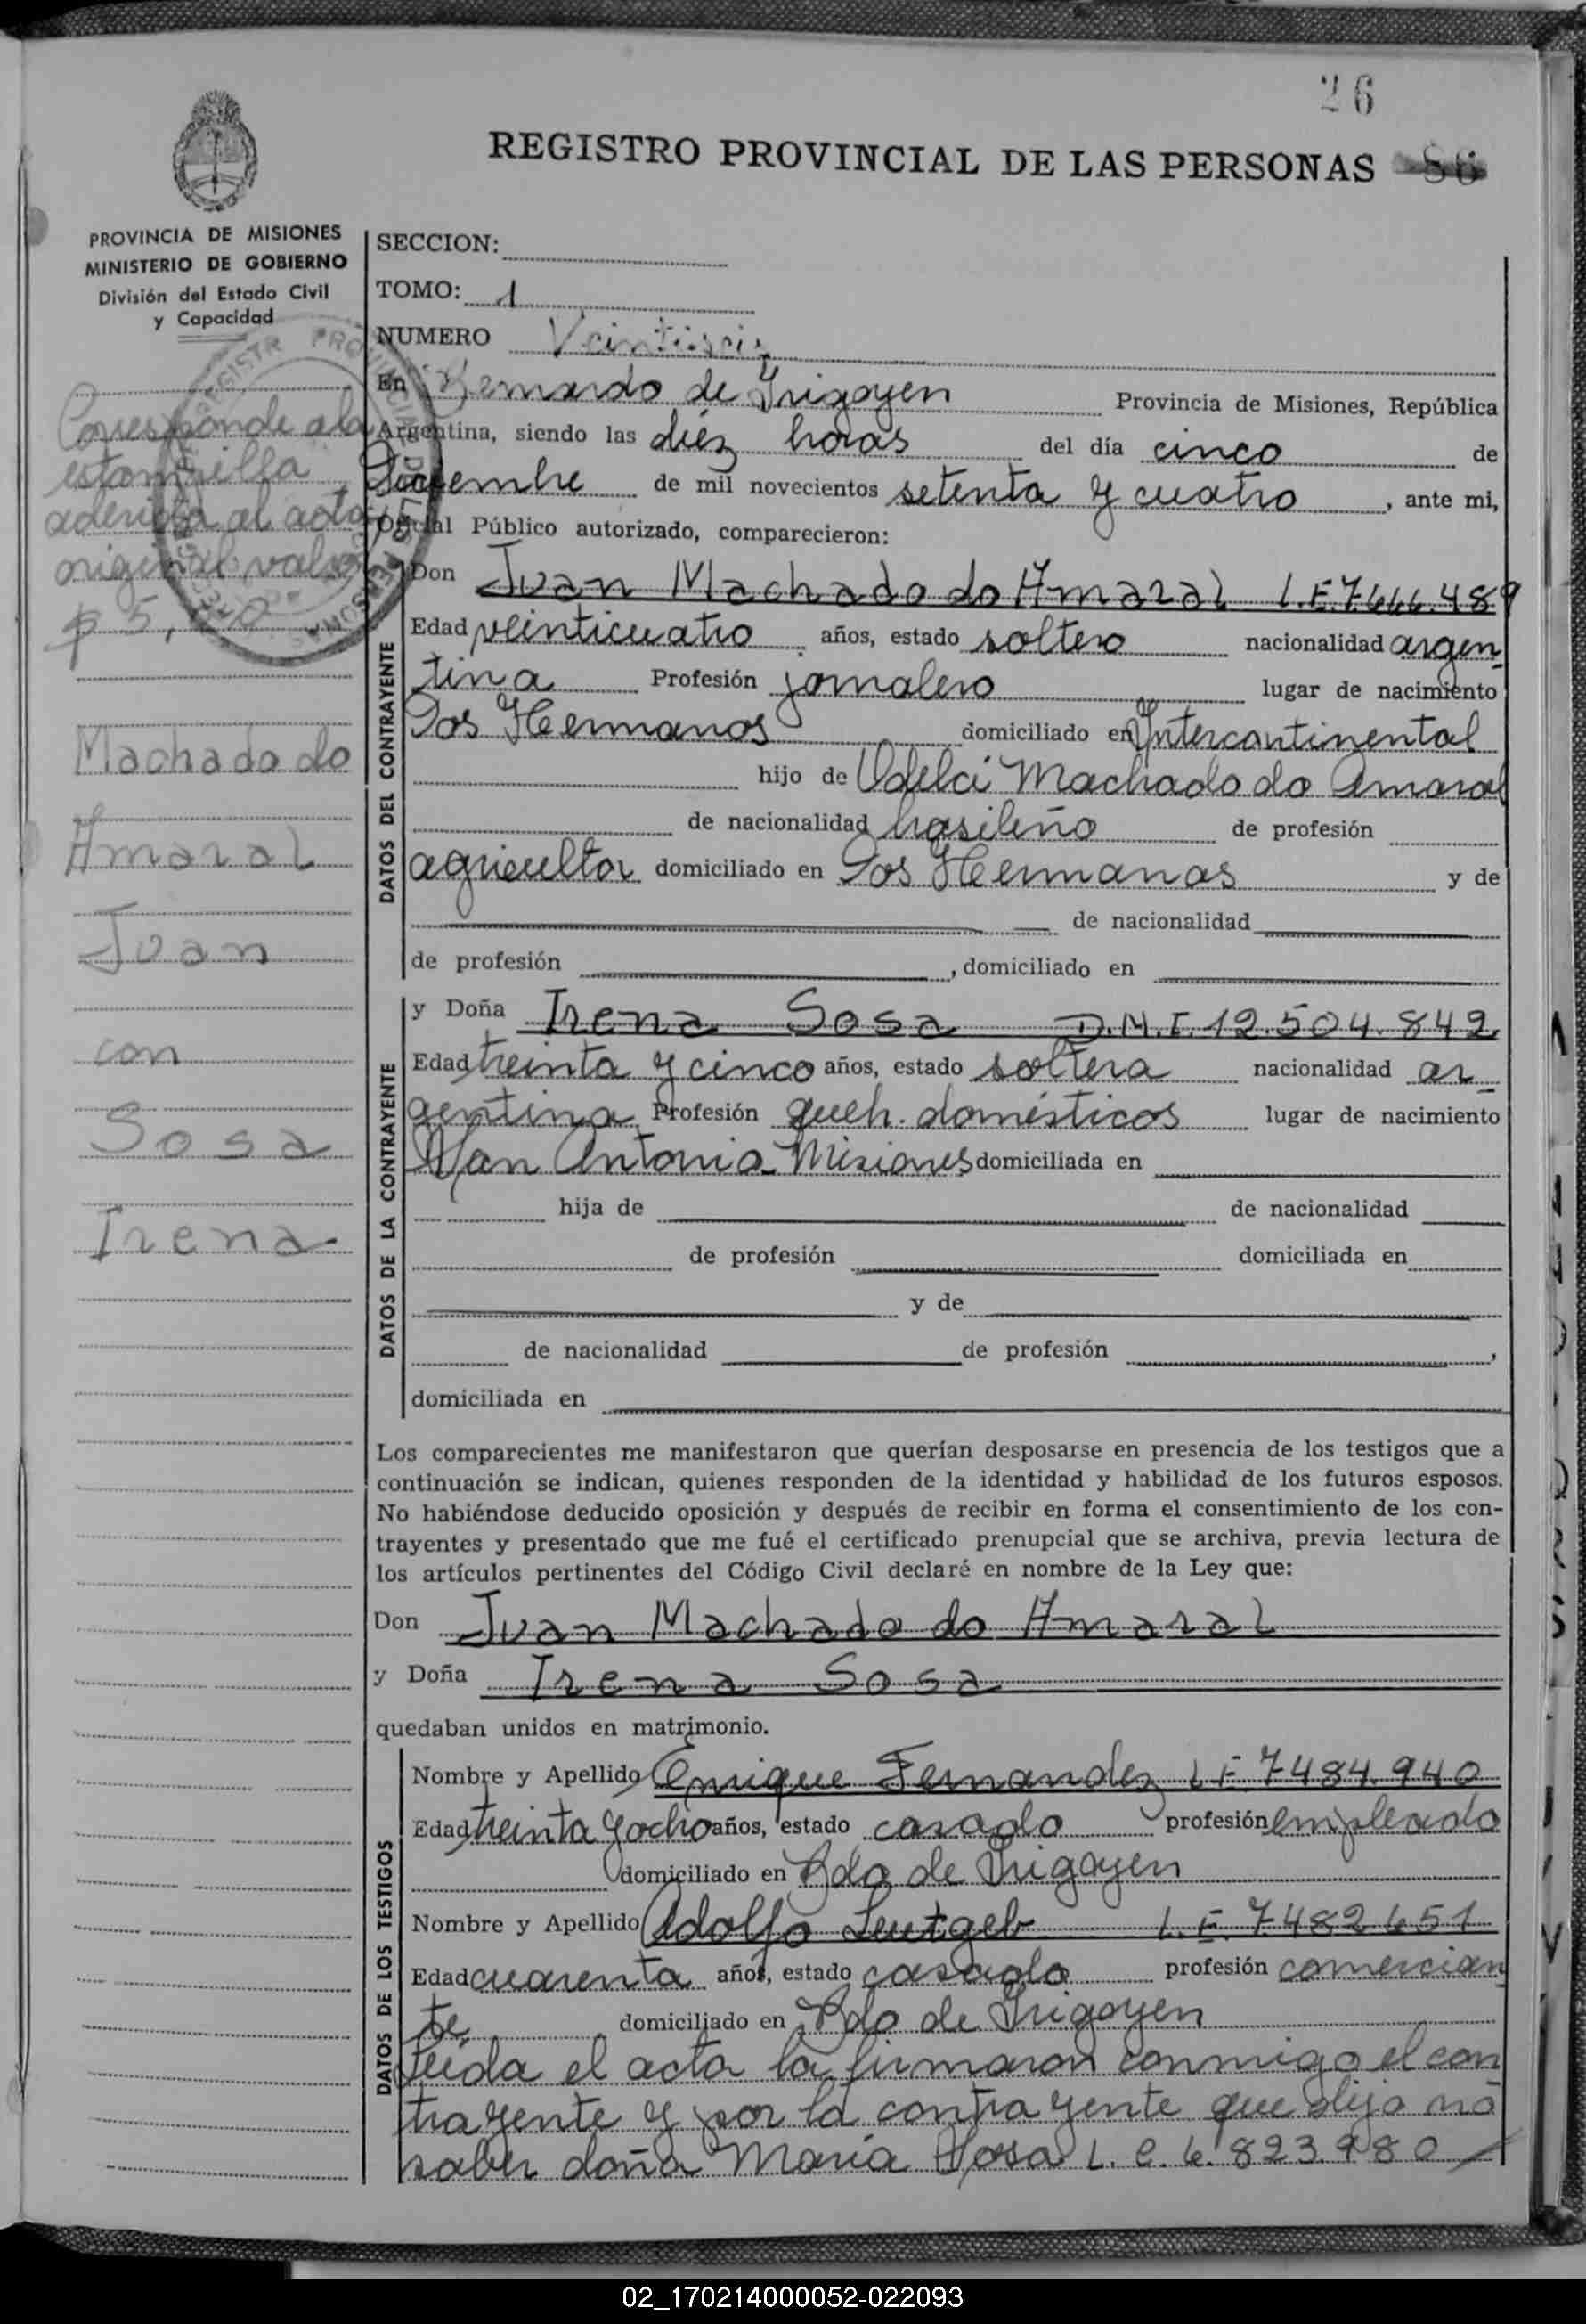 26
REGISTRO PROVINCIAL DE LAS PERSONAS 86
PROVINCIA DE MISIONES
MINISTERIO DE GOBIERNO
División del Estado Civil
y Capacidad
Corresponde a la
estampilla
aderida al acta
original valor
$ 5,00
Machado do
Amaral
Juan
con
Sosa
Irena
SECCION:
TOMO: 1
NUMERO Veintiseis
En Bernardo de Irigoyen Provincia de Misiones, República
Argentina, siendo las diéz horas del día cinco de
de mil novecientos setenta y cuatro, ante mi,
Oficial Público autorizado, comparecieron:
DATOS DEL CONTRAYENTE
Don Juan Machado do Amaral L.E.7.666.489
Edad veinticuatro años, estado soltero nacionalidad argen
tina Profesión jornalero lugar de nacimiento
Dos Hermanos domiciliado en Intercontinental
hijo de Odelci Machado do Amaral
de nacionalidad brasileño de profesión
agricultor domiciliado en Dos Hermanas y de
de nacionalidad
de profesión , domiciliado en
DATOS DE LA CONTRAYENTE
y Doña Irena Sosa D.N.I.12.504.842
Edad treinta y cinco años, estado soltera nacionalidad ar
gentina Profesión queh. domésticos lugar de nacimiento
San Antonio Misiones domiciliada en
hija de de nacionalidad
de profesión domiciliada en
y de
de nacionalidad de profesión ,
domiciliada en
Los comparecientes me manifestaron que querían desposarse en presencia de los testigos que a
continuación se indican, quienes responden de la identidad y habilidad de los futuros esposos.
No habiéndose deducido oposición y después de recibir en forma el consentimiento de los con-
trayentes y presentado que me fué el certificado prenupcial que se archiva, previa lectura de
los artículos pertinentes del Código Civil declaré en nombre de la Ley que:
Don Juan Machado do Amaral
y Doña Irena Sosa
quedaban unidos en matrimonio.
DATOS DE LOS TESTIGOS
Nombre y Apellido Enrique Fernandez L.E.7484.940
Edad treinta y ocho años, estado casado profesión empleado
domiciliado en Bdo de Irigoyen
Nombre y Apellido Adolfo Leutgeb L.E.7.482651
Edad cuarenta años, estado casado profesión comercian
te domiciliado en Bdo de Irigoyen
Leída el acta la firmaron conmigo el con
trayente y por la contrayente que dijo no
saber doña María Sosa L.C.6.823.980
02_170214000052-022093